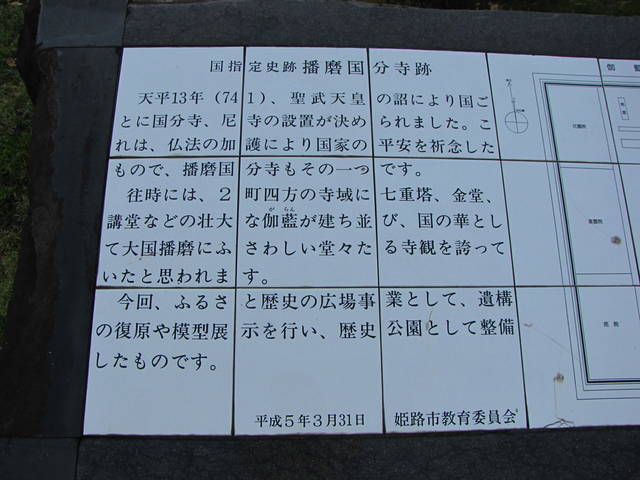 国指定史跡播磨国分寺跡
天平13年（741）、聖武天皇の詔により国ご
とに国分寺、尼寺の設置が決められました。こ
れは、仏法の加護により国家の平安を祈念した
もので、播磨国分寺もその一つです。
往時には、2町四方の寺域に七重塔、金堂、
がらん
講堂などの壮大な伽藍が建ち並び、国の華とし
て大国播磨にふさわしい堂々たる寺観を誇って
いたと思われます。
今回、ふるさと歴史の広場事業として、遺構
の復原や模型展示を行い、歴史公園として整備
したものです。
平成5年3月31日 姫路市教育委員会
伽藍